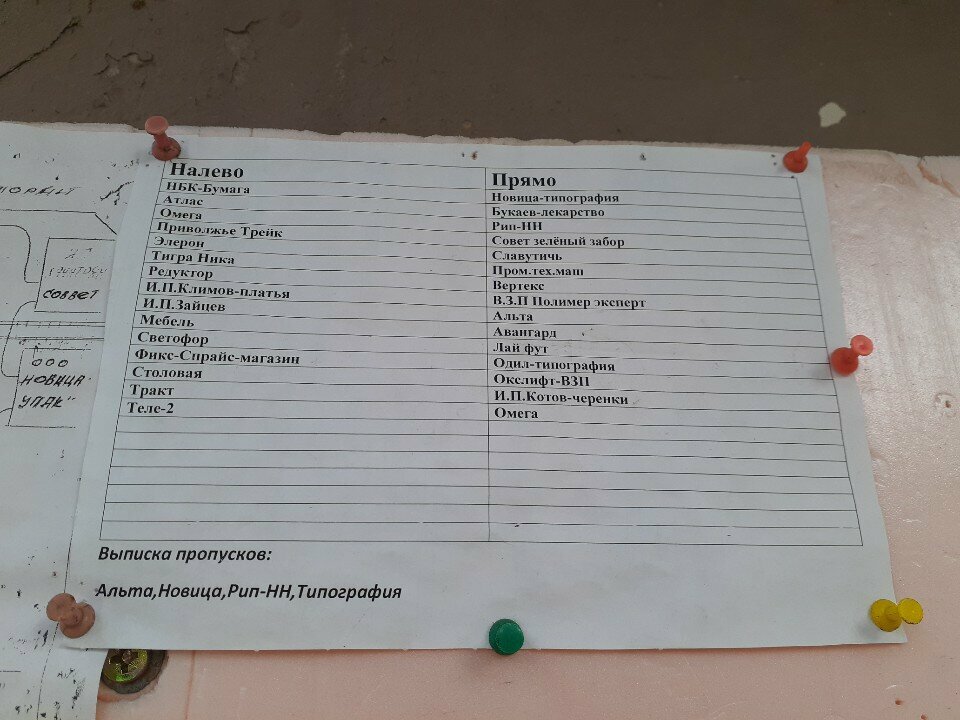 Налево
НБК-Бумага
Атлас
Омега
Приволжье Трейк
Элерон
Тигра Ника
Редуктор
И.П.Климов-платья
И.П.Зайцев
Мебель
Светофор
Фикс-Спрайс-магазин
Столовая
Тракт
Теле-2
Прямо
Новица-типография
Букаев-лекарство
Рип-НН
Совет зелёный забор
Славутичь
Пром.тех.маш
Вертекс
В.З.П Полимер эксперт
Альта
Авангард
Лай фут
Одил-типография
Окслифт-ВЗП
И.П.Котов-черенки
Омега
Выписка пропусков:
Альта,Новица,Рип-НН,Типография
ООО
НОВИЦА
УПАК"